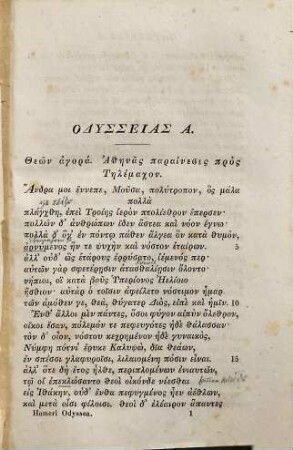 ΟΔΥΣΣΕΙΑΣ Α.
Θεῶν ἀγορά. Ἀθηνᾶς παραίνεσις πρὸς
Τηλέμαχον.
Ἄνδρα μοι ἔννεπε, Μοῦσα, πολύτροπον, ὃς μάλα
πολλὰ
πλάγχθη, ἐπεὶ Τροίης ἱερὸν πτολίεθρον ἔπερσεν·
πολλῶν δ' ἀνθρώπων ἴδεν ἄστεα καὶ νόον ἔγνω·
πολλὰ δ' ὅγ' ἐν πόντῳ πάθεν ἄλγεα ὃν κατὰ θυμόν,
ἀρνύμενος ἥν τε ψυχὴν καὶ νόστον ἑταίρων. 5
ἀλλ' οὐδ' ὣς ἑτάρους ἐρρύσατο, ἱέμενός περ·
αὐτῶν γὰρ σφετέρῃσιν ἀτασθαλίῃσιν ὄλοντο·
νήπιοι, οἳ κατὰ βοῦς Ὑπερίονος Ἠελίοιο
ἤσθιον· αὐτὰρ ὁ τοῖσιν ἀφείλετο νόστιμον ἦμαρ.
τῶν ἀμόθεν γε, θεά, θύγατερ Διός, εἰπὲ καὶ ἡμῖν. 10
Ἔνθ' ἄλλοι μὲν πάντες, ὅσοι φύγον αἰπὺν ὄλεθρον,
οἴκοι ἔσαν, πόλεμόν τε πεφευγότες ἠδὲ θάλασσαν·
τὸν δ' οἶον, νόστου κεχρημένον ἠδὲ γυναικός,
Νύμφη πότνι' ἔρυκε Καλυψώ, δῖα θεάων,
ἐν σπέσσι γλαφυροῖσι, λιλαιομένη πόσιν εἶναι. 15
ἀλλ' ὅτε δὴ ἔτος ἦλθε, περιπλομένων ἐνιαυτῶν,
τῷ οἱ ἐπεκλώσαντο θεοὶ οἶκόνδε νέεσθαι
εἰς Ἰθάκην, οὐδ' ἔνθα πεφυγμένος ἦεν ἀέθλων,
καὶ μετὰ οἷσι φίλοισι. θεοὶ δ' ἐλέαιρον ἅπαντες
Homeri Odyssea. 1